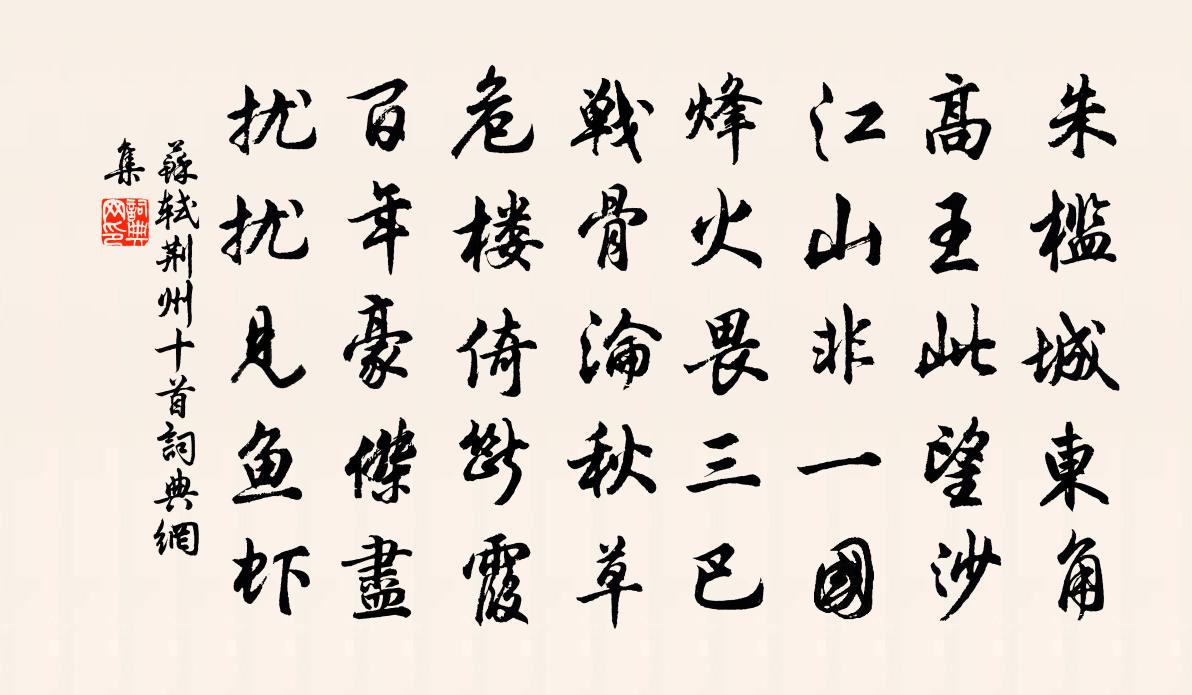 朱檻城東角
高王此望沙
江山非一國
烽火畏三巴
戦骨淪秋草
危楼倚斷霞
百年豪傑盡
扰扰見鱼虾
蘇軾荆州十首詞典網
集
詞典
网印